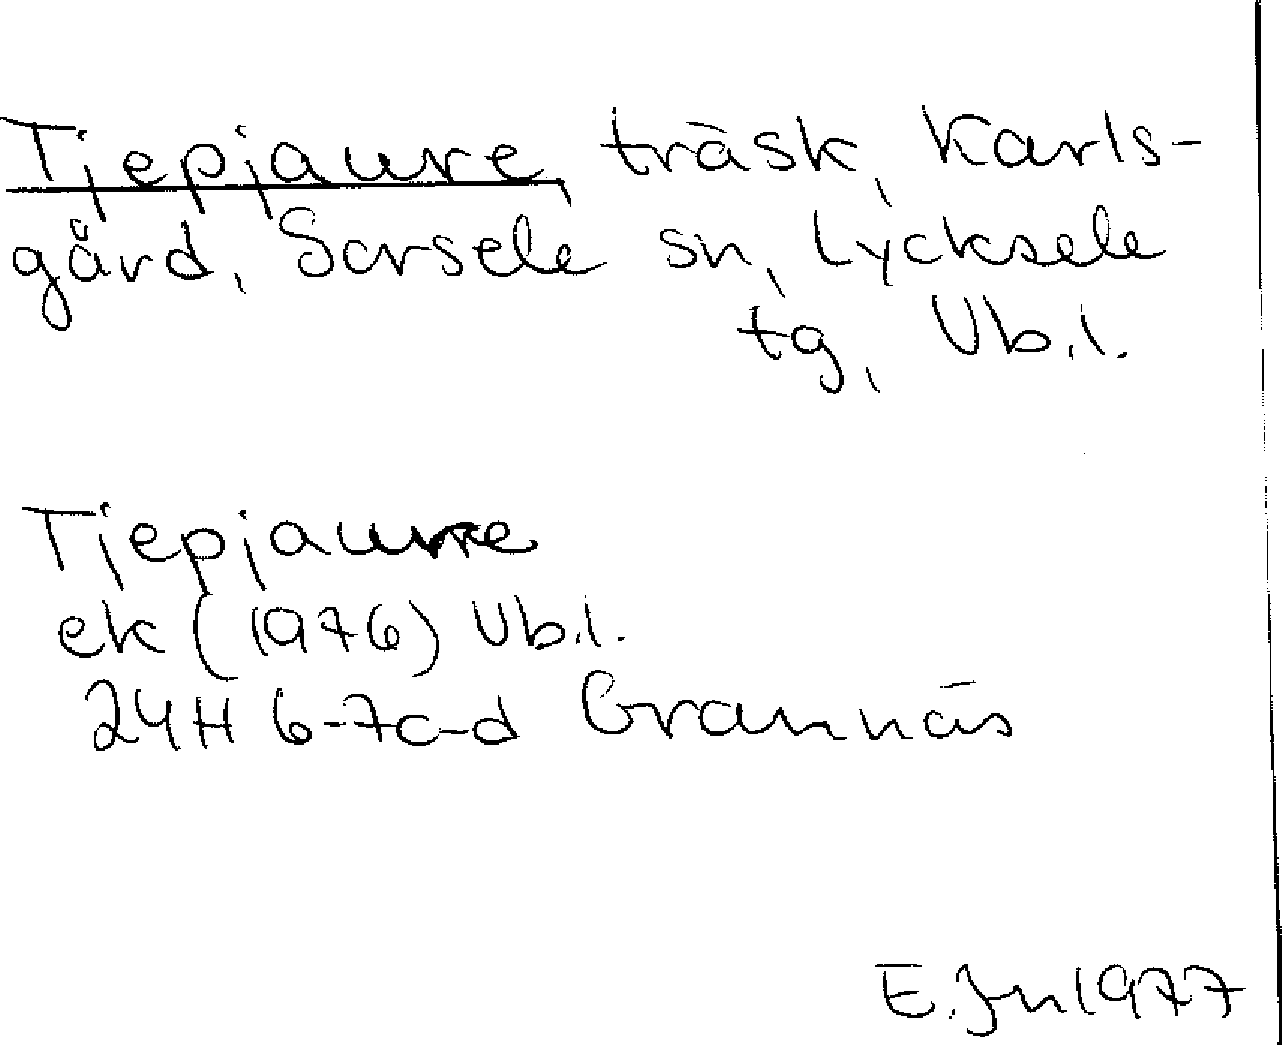 Tjepjaure, träsk, Karls-
gård, Sorsele sn, Lycksele
tg, Vb.l.
Tjepjaure
ek (1976) Vb.l.
24H 6-7c-d Grannäs
E.Jn 1977